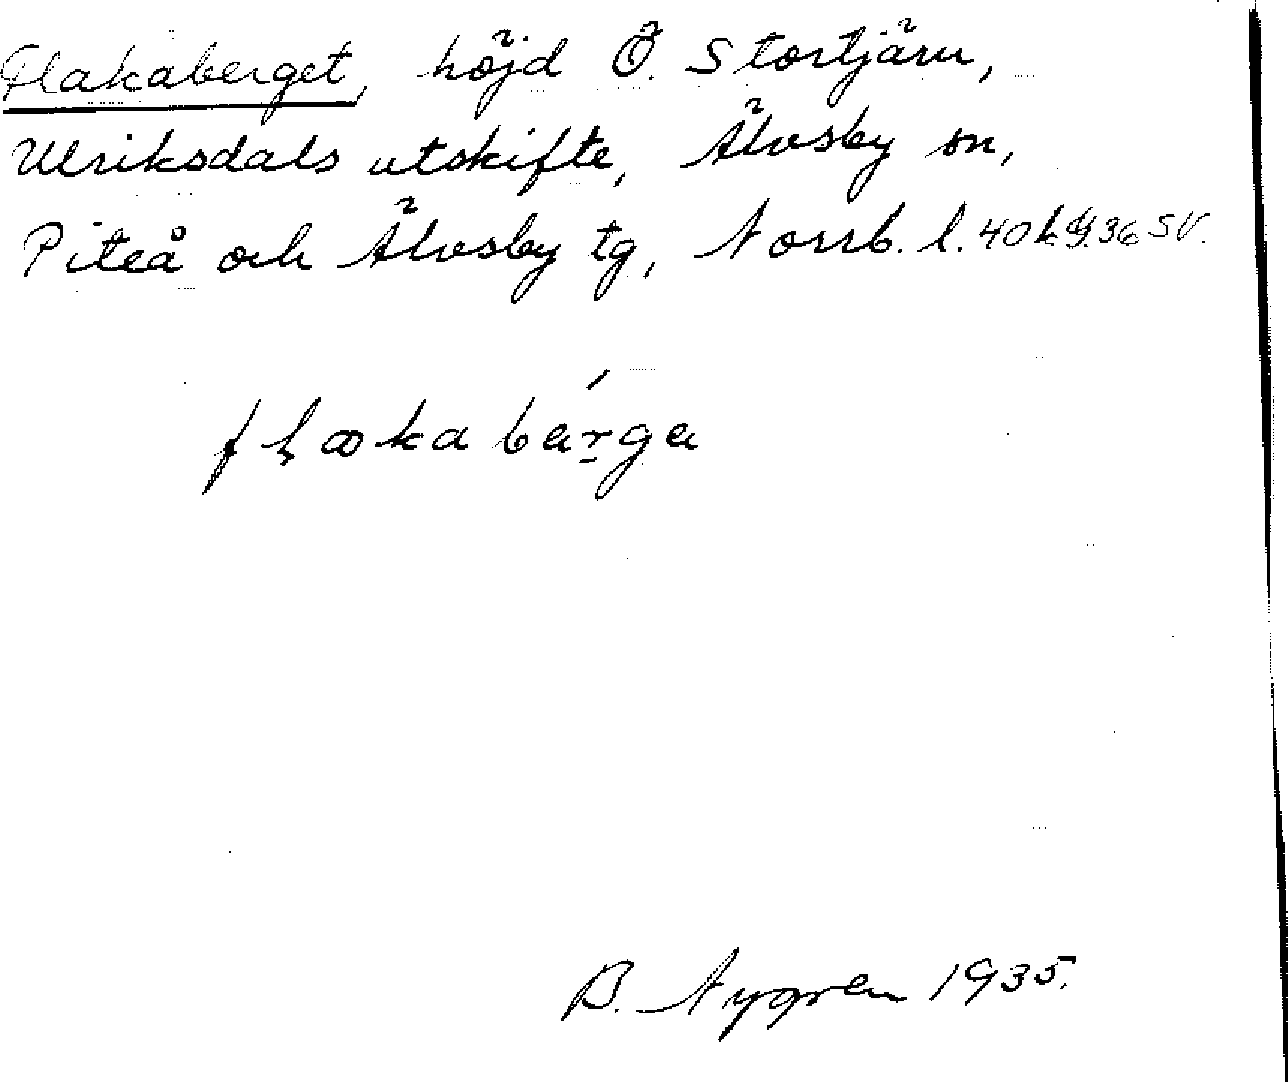 Flakaberget, höjd Ö. Stortjärn,
Ulriksdals utskifte, Älvsby sn,
Piteå och Älvsby tg, Norrb. l. 40 k. g.36 SV.
flakabärga
B. Nygren 1935.